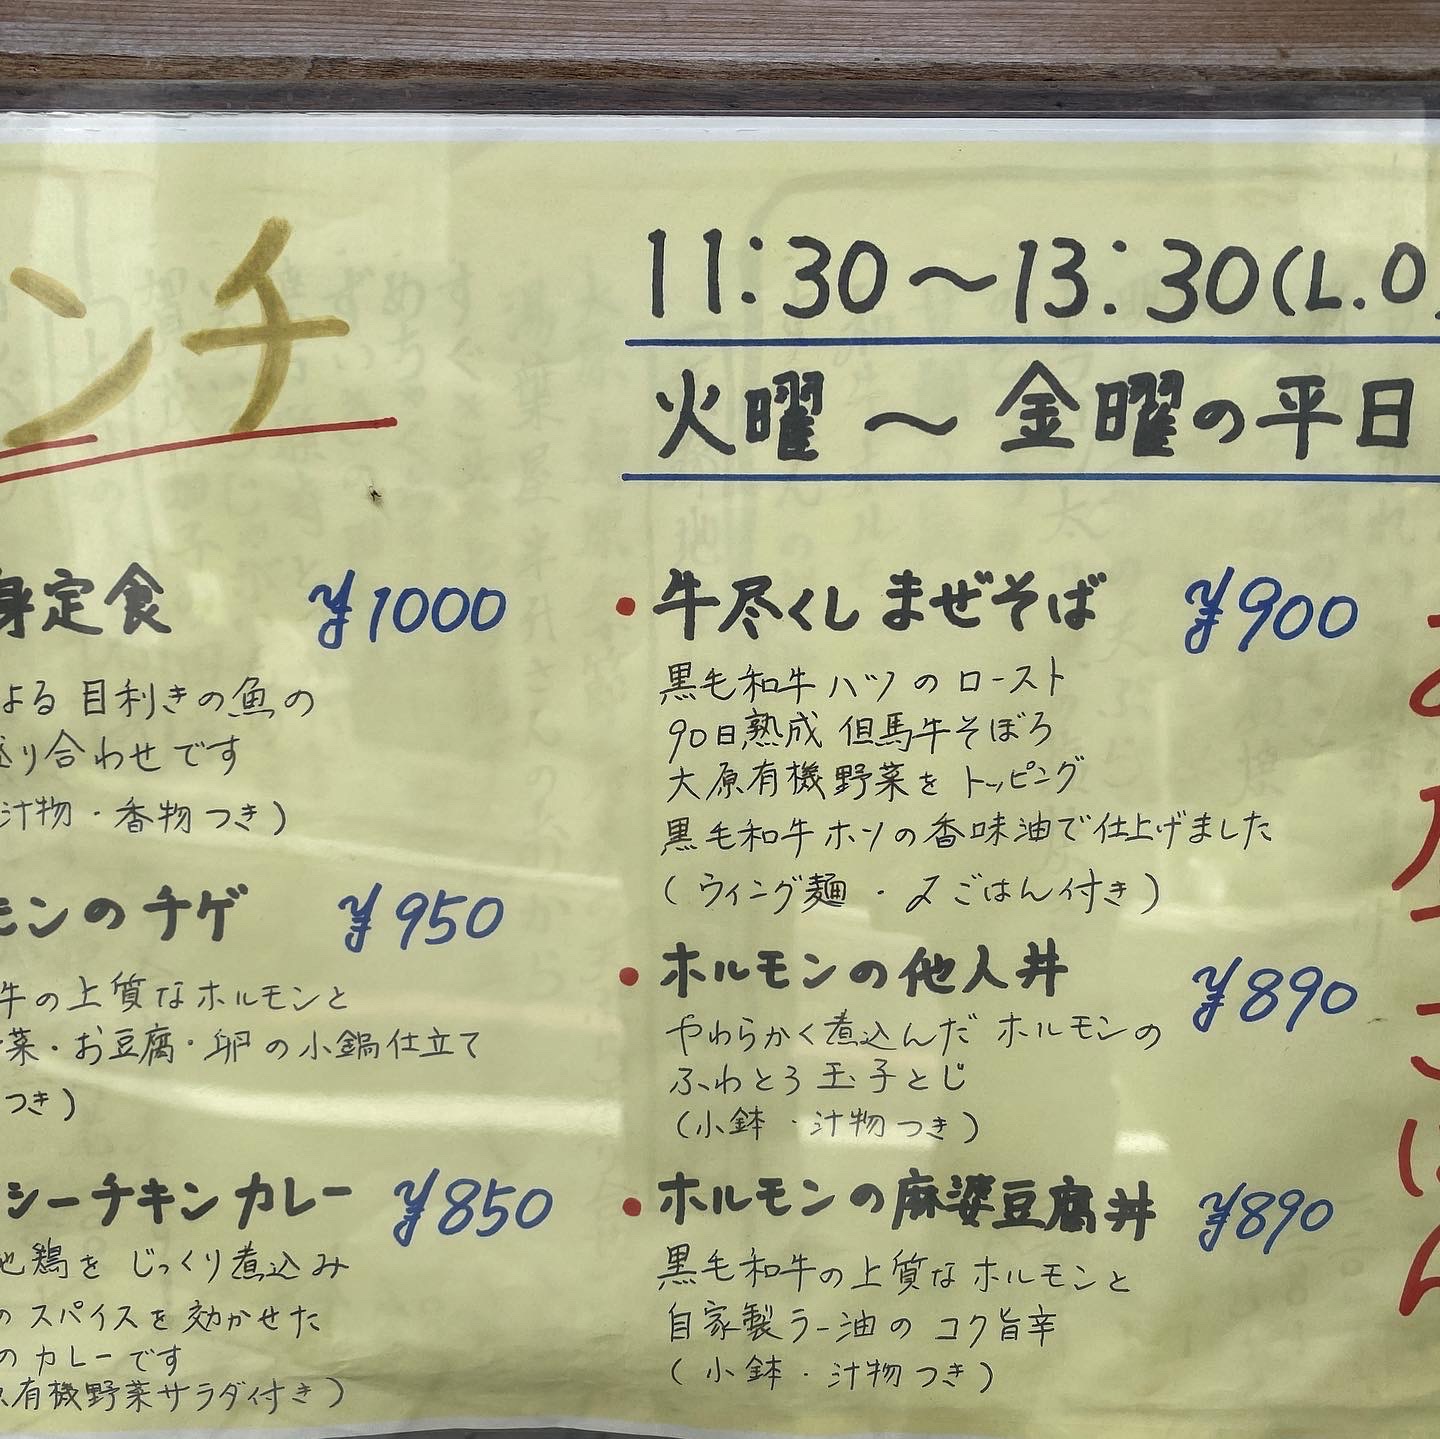 ンチ
11:30〜13:30(L.O
火曜〜金曜の平日
身定食 ¥1000
よる目利きの魚の
盛り合わせです
汁物・香物つき)
モンのチゲ ¥950
牛の上質なホルモンと
菜・お豆腐・卵の小鍋仕立て
つき)
シーチキンカレー ¥850
地鶏をじっくり煮込み
のスパイスを効かせた
のカレーです
原有機野菜サラダ付き)
・牛尽くしまぜそば ¥900
黒毛和牛ハツのロースト
90日熟成 但馬牛そぼろ
大原有機野菜をトッピング
黒毛和牛ホソの香味油で仕上げました
(ウィング麺・〆ごはん付き)
・ホルモンの他人丼 ¥890
やわらかく煮込んだホルモンの
ふわとろ玉子とじ
(小鉢・汁物つき)
・ホルモンの麻婆豆腐丼 ¥890
黒毛和牛の上質なホルモンと
自家製ラー油のコク旨辛
(小鉢・汁物つき)
ごはん